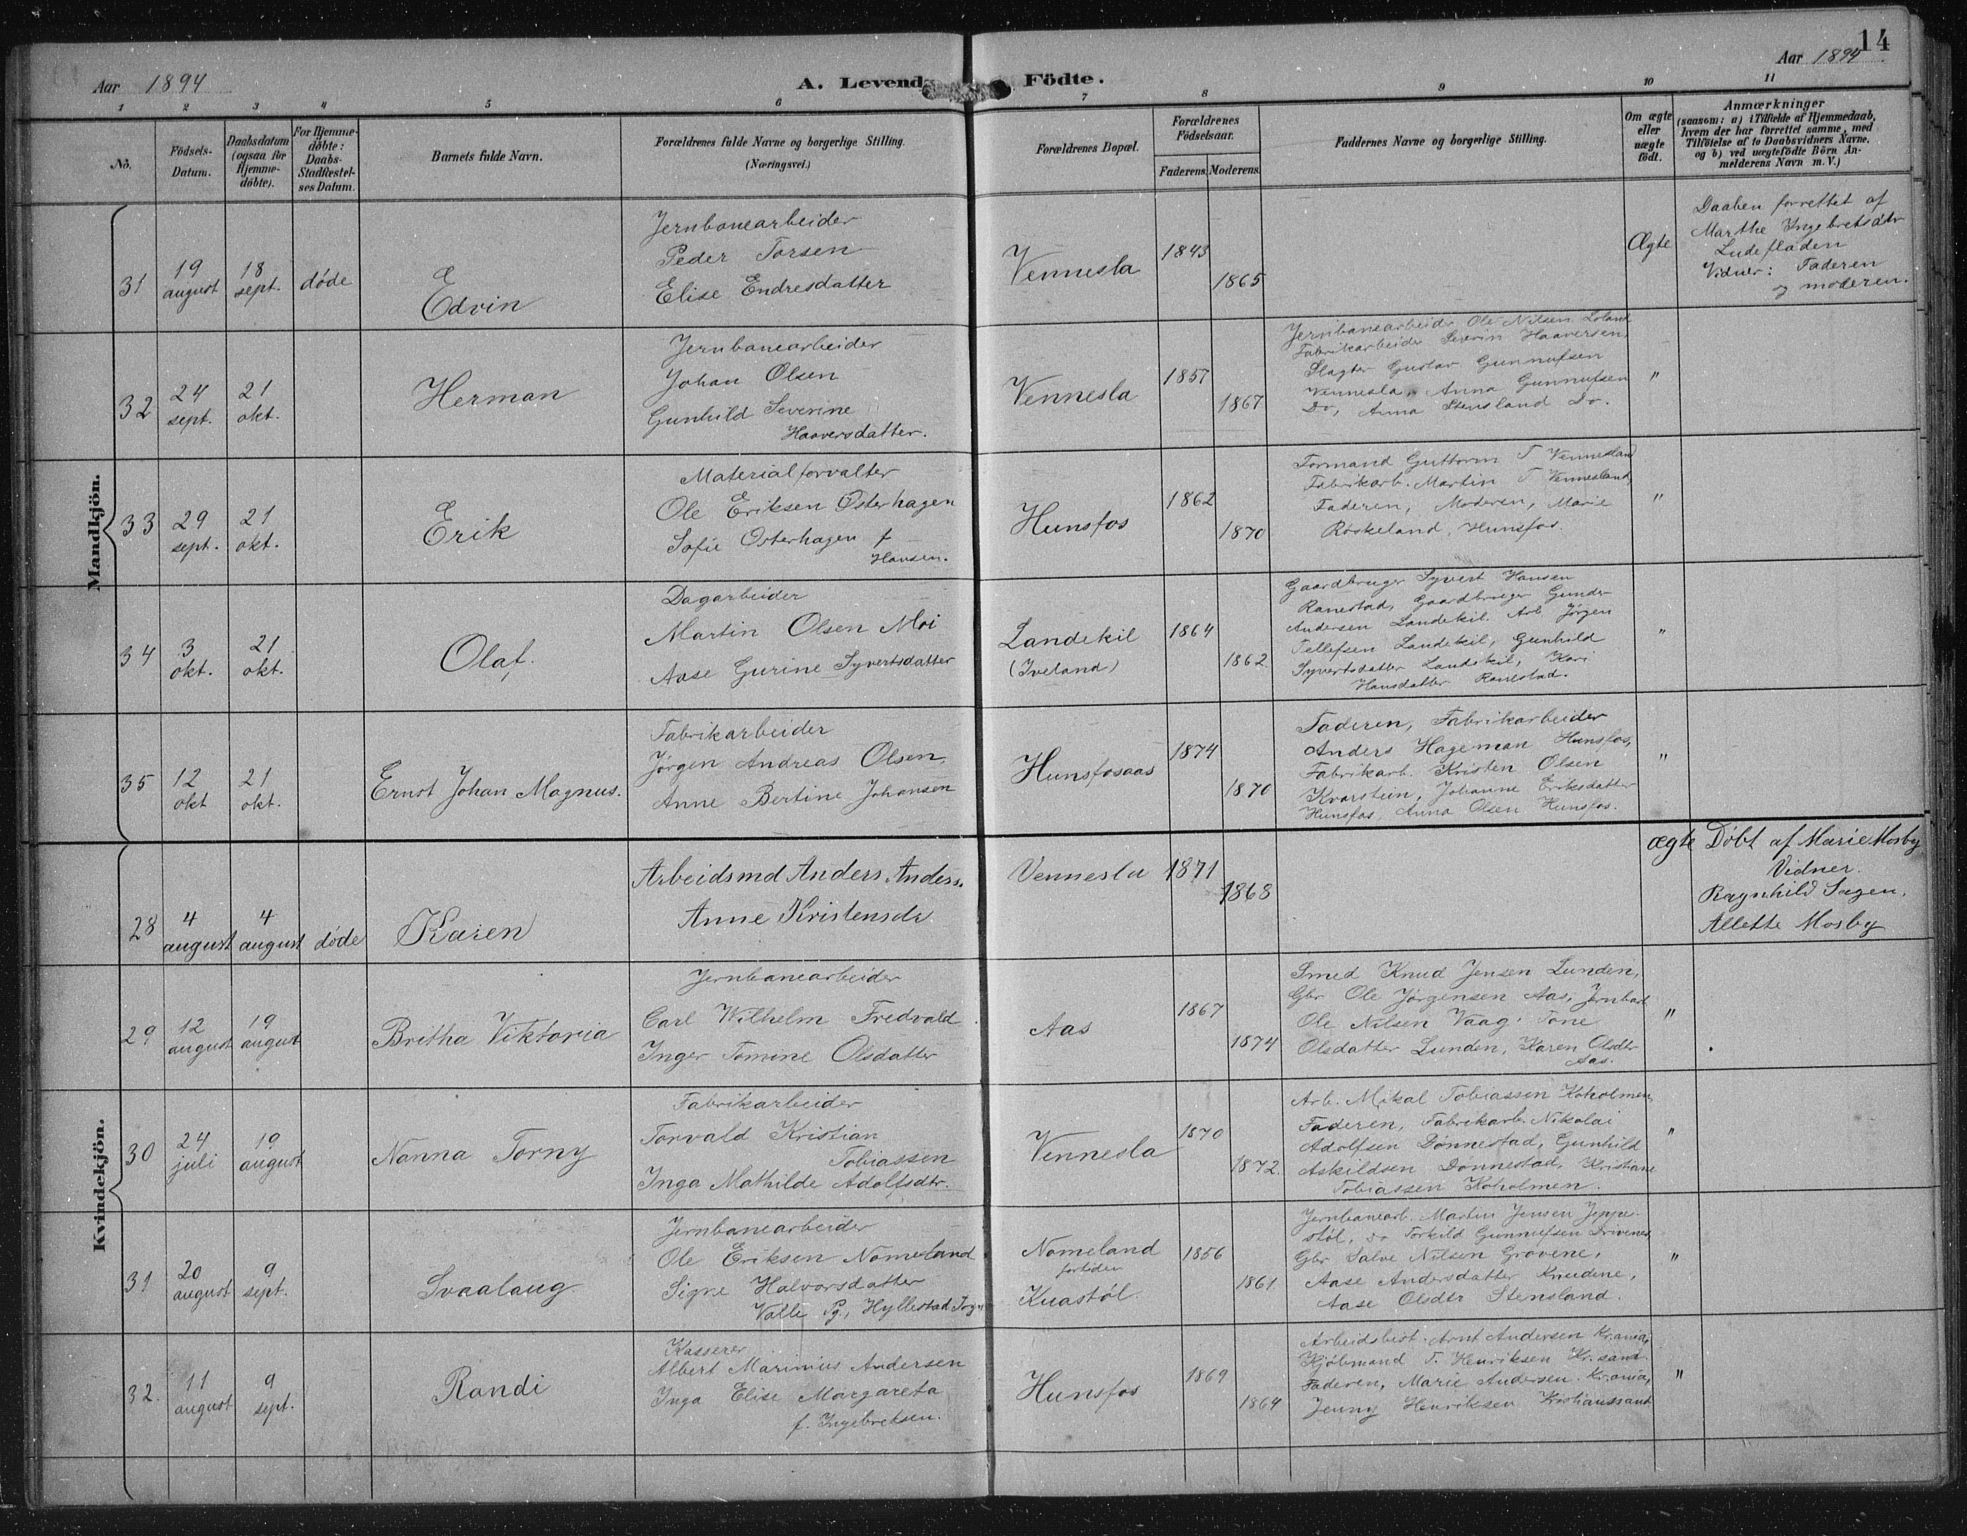 14
Aar 1894
A. Levende Födte.
Aar 1894
1 2 3 4 5 6 7 8 9 10 11
No.
Födsels-Datum.
Daabsdatum (ogsaa for Hjemme-döbte).
For Hjemme-döbte: Daabs-Stadfæstel-ses Datum.
Barnets fulde Navn.
Forældrenes fulde Navne og borgerlige Stilling.
(Næringsvei.)
Forældrenes Bopæl.
Forældrenes Födselsaar.
Faderens. Moderens.
Faddernes Navne og borgerlige Stilling.
Om ægte eller uægte födt.
Anmærkninger
(saasom: a) i Tilfælde af Hjemmedaab,
hvem der har forrettet samme, med
Tilföielse af to Daabsvidners Navne,
og b) ved uægtefödte Börn An-
melderens Navn m. V.)
Mandkjön.
31
19 august
18 sept.
døde
Edvin
Jernbanearbeider
Peder Torsen
Elise Endresdatter
Vennesla
1843
1865
Ægte
Daaben forrettet af
Marthe Ingebretsdtr
Ludefladen
Vidner: Faderen
og moderen.
32
24 sept.
21 okt.
Herman
Jernbanearbeider
Johan Olsen
Gunhild Severine
Haaversdatter.
Vennesla
1857
1867
Jernbanearbeider Ole Nilsen Loland
Fabrikarbeider Severin Haaversen,
Slagter Gustav Gunnufsen
Vennesla, Anna Gunnufsen
Do, Anna Stensland Do.
"
33
29 sept.
21 okt.
Erik
Materialforvalter
Ole Eriksen Østerhagen
Sofie Osterhagen f
Hansen.
Hunsfos
1862
1870
Formand Guttorm T Vennesland
Fabrikarb. Martin T Vennesland,
Faderen, Moderen, Marie
Røskeland, Hunsfos.
"
34
3 okt.
21 okt.
Olaf.
Dagarbeider
Martin Olsen Moi
Aase Gurine Syvertsdatter
Landekil
(Iveland)
1864
1862
Gaardbruger Syvert Hansen
Ranestad, Gaardbruger Gunder
Andersen Landekil. Arb Jørgen
Tellefsen Landekil, Gunhild
Syvertsdatter Landekil, Kari
Hansdatter Ranestad.
"
35
12 okt
21 okt.
Ernst Johan Magnus.
Fabrikarbeider
Jørgen Andreas Olsen,
Anne Bertine Johansen
Hunsfosaas
1874
1870
Faderen, Fabrikarbeider
Anders Hageman Hunsfos,
Fabrikarb. Kristen Olsen
Kvarstein, Johanne Eriksdatter
Hunsfos, Anna Olsen Hunsfos.
"
Kvindekjön.
28
4 august
4 august
døde
Karen
Arbeidsmd Anders Anders.
Anne Kristensdr
Vennesla
1871
1868
ægte
Døbt af Marie Mosby
Vidner.
Ragnhild Sagen,
Allette Mosby
29
12 august
19 august
Britha Viktoria
Jernbanearbeider
Carl Wilhelm Fredvald
Inger Tomine Olsdatter
Aas
1867
1874
Smed Knud Jensen Lunden,
Gbr Ole Jørgensen Aas, Jernbarb
Ole Nilsen Vaag. Tone
Olsdatter Lunden, Karen Olsdtr
Aas.
"
30
24 juli
19 august
Nanna Torny
Fabrikarbeider
Torvald Kristian
Tobiassen
Inga Mathilde Adolfsdtr.
Vennesla
1870
1872.
Arb. Mikal Tobiassen Koholmen,
Faderen, Fabrikarb. Nikolai
Adolfsen Dønnestad, Gunhild
Askildsen Dønnestad, Kristiane
Tobiassen Koholmen.
"
31
20 august
9 sept.
Svaalaug
Jernbanearbeider
Ole Eriksen Nomeland
Signe Halvorsdatter
Valle Pg, Hyllestad Sogn
Nomeland
fortiden
Kuastøl.
1856
1861
Jernbanearb. Martin Jensen Jeppe-
støl, Do Torkild Gunnufsen Drivenes
Gbr Salve Nilsen Grovene,
Aase Andersdatter Knudene,
Aase Olsdtr Stensland.
"
32.
11 august
9 sept.
Randi
Kasserer
Albert Marinius Andersen
Inga Elise Margareta
f. Ingebretsen.
Hunsfos
1869
1864
Arbeidsbest. Arnt Andersen Kr.ania,
Kjøbmand T. Henriksen Kr.sand
Faderen, Marie Andersen Kr.ania,
Jenny Henriksen Kristianssand
"